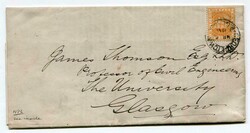 James Thomson Esq
Professor of Civil Engineering
The University
Glasgow